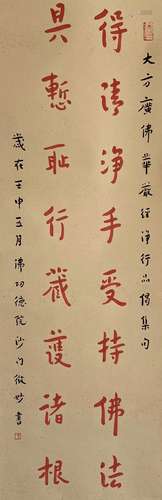 大方廣佛華嚴經淨行品偈集句
得清淨手受持佛法
具慙恥行藏護諸根
歲在壬申五月佛功德院沙門微妙書